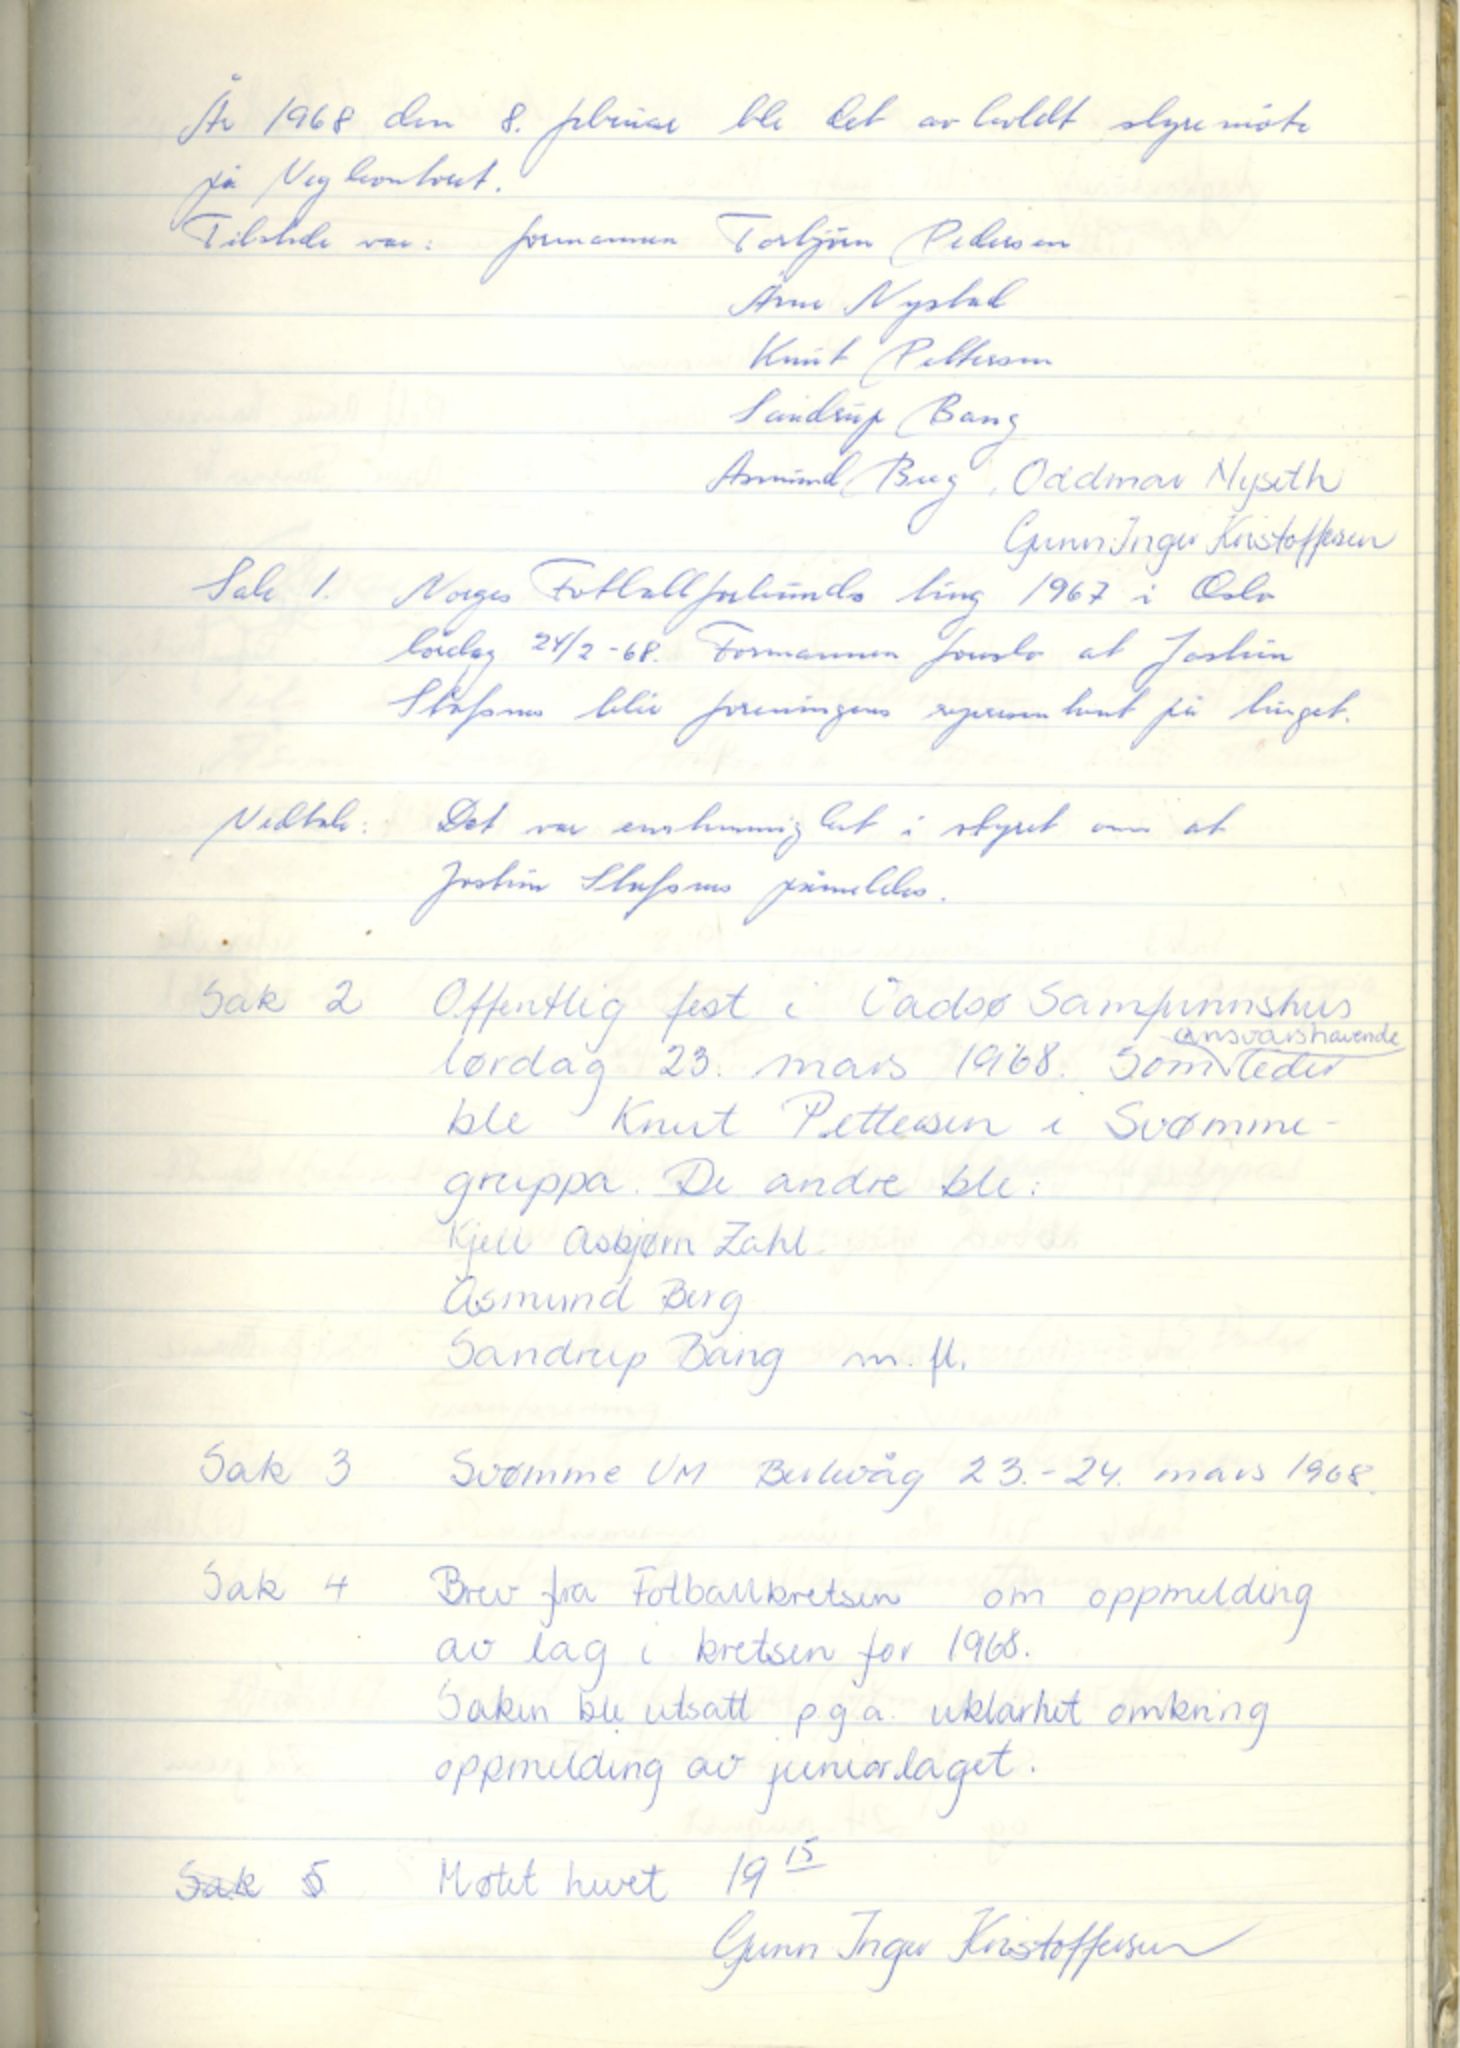 År 1968 den 8. februar ble det avholdt styremöte
på Vegkontoret.
Tilstede var: formannen Torbjörn Pedersen
Arne Nystad
Knut Pettersen
Sandrup Bang
Asmund Berg, Oddmar Nyseth
Gunn Inger Kristoffersen
Sak 1. Norges Fotballforbunds ting 1967 i Oslo
lördag 24/2-68. Formannen foreslo at Jostein
blir foreningens representant på tinget.
Vedtak: Det var enstemmighet i styret om at
Jostein påmeldes.
Sak 2 Offentlig fest i Vadsø Samfunnshus
lørdag 23. mars 1968. Som ansvarshavende leder
ble Knut Pettersen i Svømme-
gruppa. De andre ble:
Kjell Asbjørn Zahl
Asmund Berg
Sandrup Bang m.fl.
Sak 3 Svømme VM Berlevåg 23.-24. mars 1968.
Sak 4 Brev fra Fotballkretsen om oppmelding
av lag i kretsen for 1968.
Saken ble utsatt p.g.a. uklarhet omkring
oppmelding av juniorlaget.
Sak 5 Møtet hevet 19 15
Gunn Inger Kristoffersen